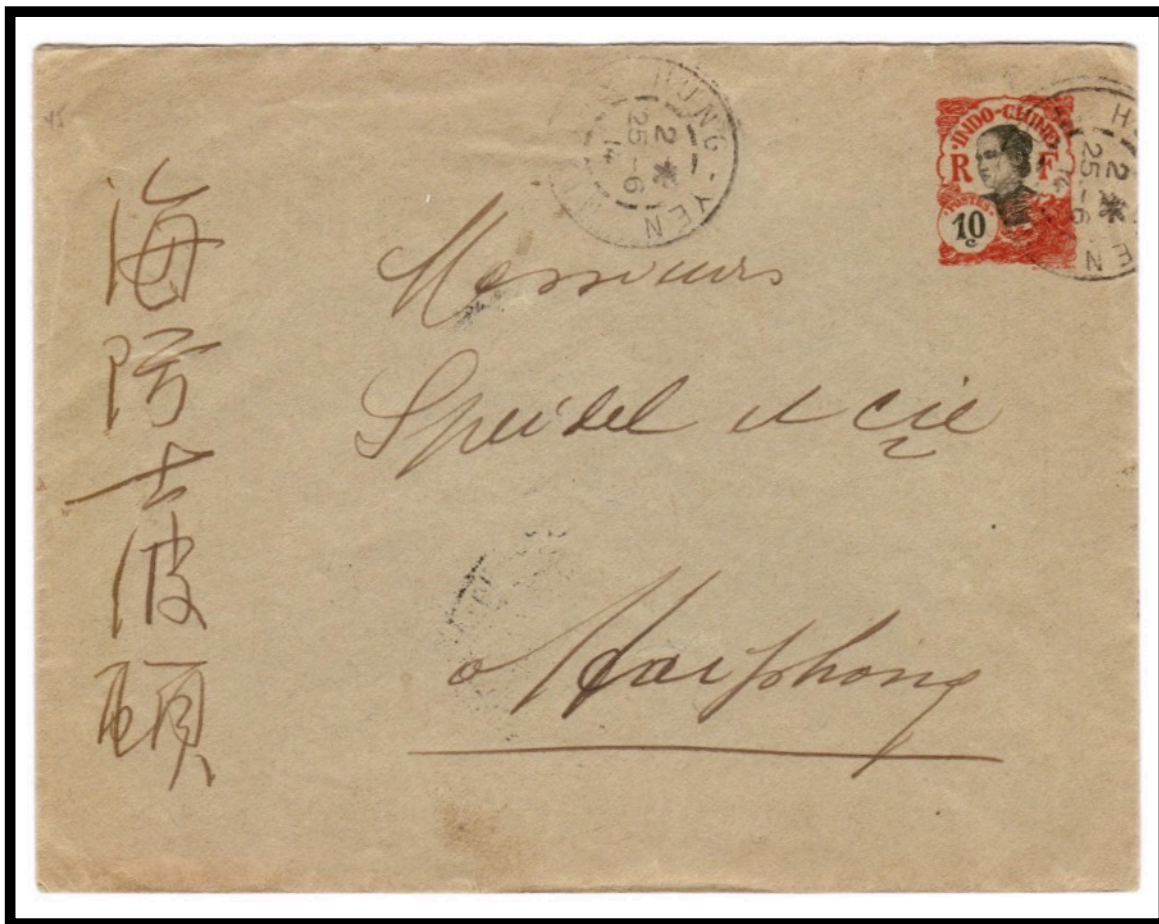 海防士波頤
HUNG-YEN
2 *
25 -6
14
INDO-CHINE
R F
POSTES
10
c
H EN
2 *
25 -6
14
Messieurs
Speidel et cie
a Haiphong